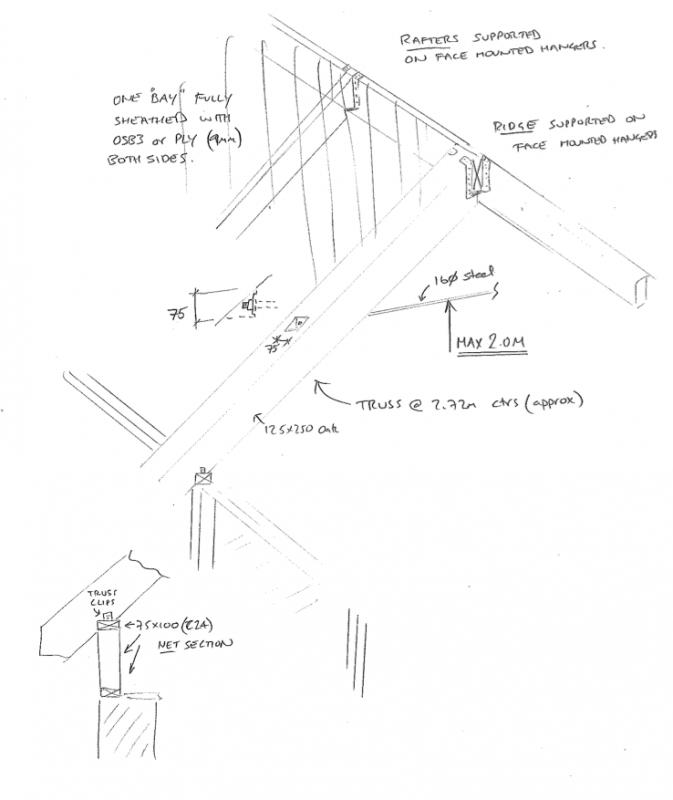 RAFTERS SUPPORTED
ON FACE MOUNTED HANGERS.
ONE "BAY" FULLY
SHEATHED WITH
OSB3 or PLY (9mm)
BOTH SIDES.
RIDGE SUPPORTED ON
FACE MOUNTED HANGERS
16ϕ steel
75
75
MAX 2.0M
TRUSS @ 2.72m ctrs (approx)
125x250 Oak
TRUSS
CLIPS
75x100 (C24)
NET SECTION